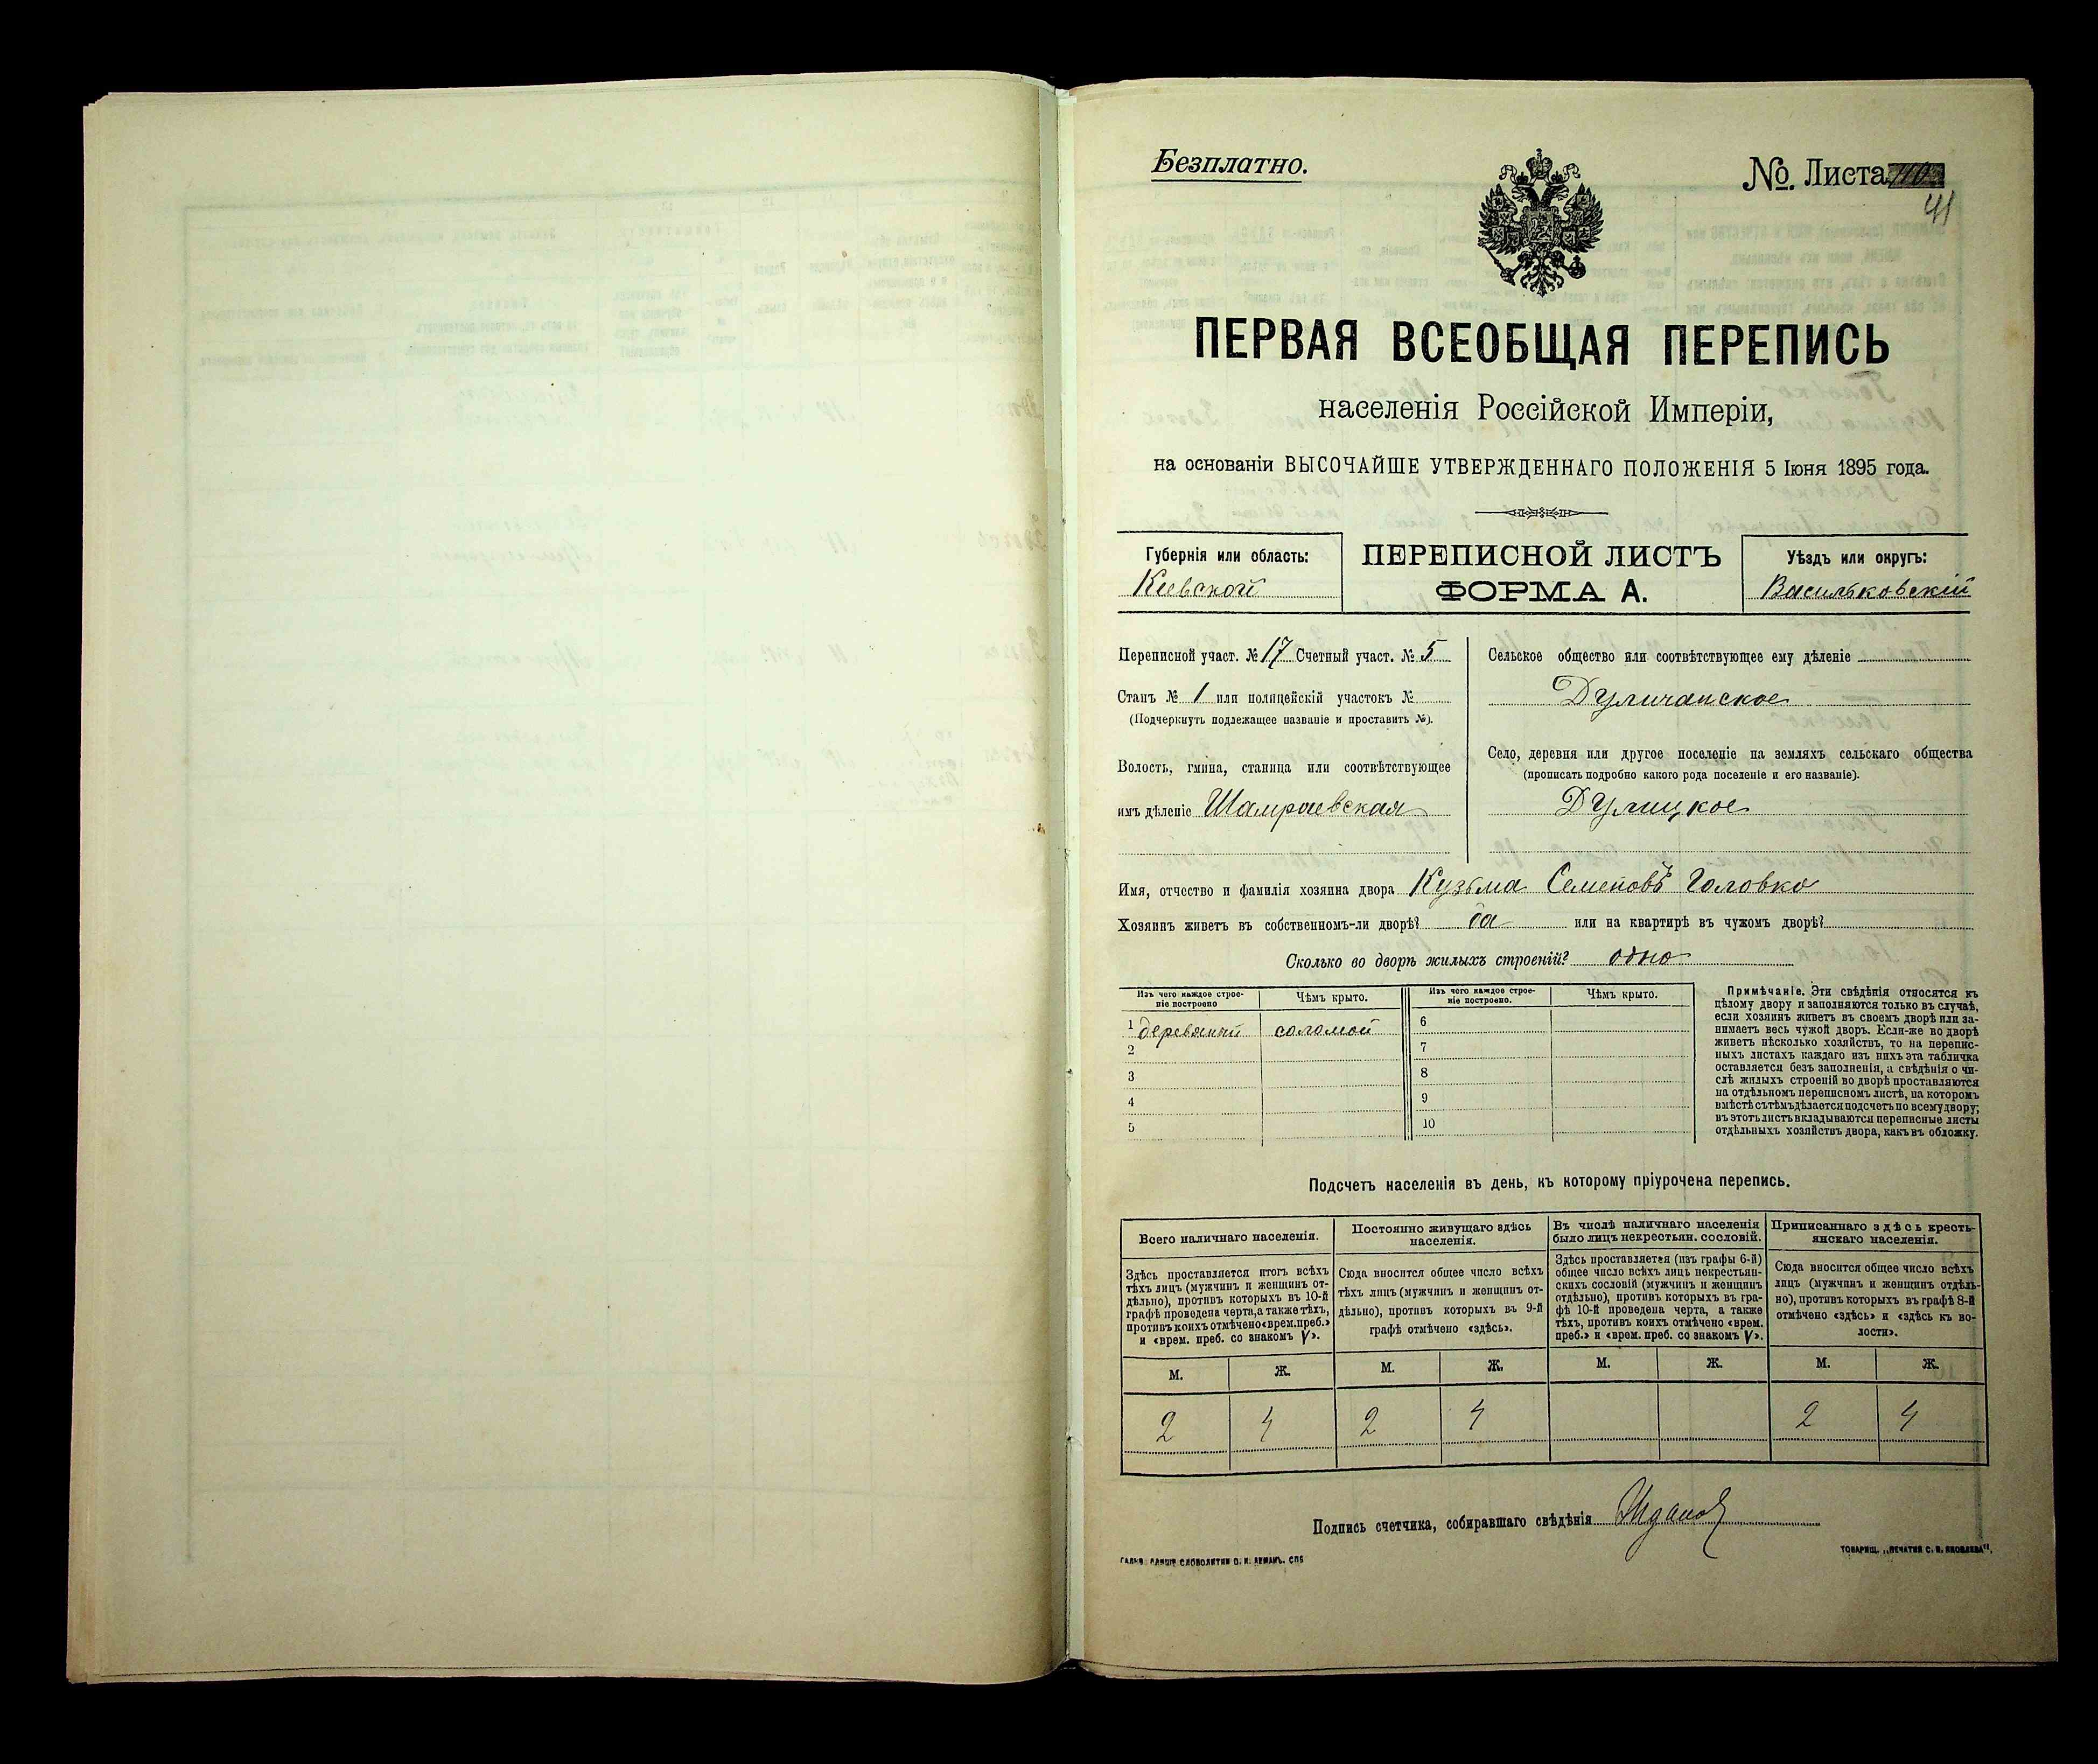 Безплатно.
№. Листа 110
41
ПЕРВАЯ ВСЕОБЩАЯ ПЕРЕПИСЬ
населенія Россійской Имперіи,
на основаніи ВЫСОЧАЙШЕ УТВЕРЖДЕННАГО ПОЛОЖЕНІЯ 5 Іюня 1895 года.
Губернія или область:
Киевской
ПЕРЕПИСНОЙ ЛИСТЪ
ФОРМА А.
Уѣздъ или округъ:
Васильковскій
Переписной участ. № 17 Счетный участ. № 5
Станъ № 1 или полицейскій участокъ №
(Подчеркнуть подлежащее названіе и проставить №).
Волость, гмина, станица или соотвѣтствующее
имъ дѣленіе Шамраевская
Сельское общество или соотвѣтствующее ему дѣленіе
Дуличанское
Село, деревня или другое поселеніе на земляхъ сельскаго общества
(прописать подробно какого рода поселеніе и его названіе).
Дулицкое
Имя, отчество и фамилія хозяина двора Кузьма Семеновъ Головко
Хозяинъ живетъ въ собственномъ-ли дворѣ? да или на квартирѣ въ чужомъ дворѣ?
Сколько во дворѣ жилыхъ строеній? одно
Изъ чего каждое строе-
ніе построено
Чѣмъ крыто.
Изъ чего каждое строе-
ніе построено.
Чѣмъ крыто.
1 деревяный соломой 6
2 7
3 8
4 9
5 10
Примѣчаніе. Эти свѣдѣнія относятся къ
цѣлому двору и заполняются только въ случаѣ,
если хозяинъ живетъ въ своемъ дворѣ или за-
нимаетъ весь чужой дворъ. Если-же во дворѣ
живетъ нѣсколько хозяйствъ, то на перепис-
ныхъ листахъ каждаго изъ нихъ эта табличка
оставляется безъ заполненія, а свѣдѣнія о чи-
слѣ жилыхъ строеній во дворѣ проставляются
на отдѣльномъ переписномъ листѣ, на которомъ
вмѣстѣ съ тѣмъ дѣлается подсчетъ по всему двору;
въ этотъ листъ вкладываются переписные листы
отдѣльныхъ хозяйствъ двора, какъ въ обложку.
Подсчетъ населенія въ день, къ которому пріурочена перепись.
Всего наличнаго населенія.
Здѣсь проставляется итогъ всѣхъ
тѣхъ лицъ (мужчинъ и женщинъ от-
дѣльно), противъ которыхъ въ 10-й
графѣ проведена черта, а также тѣхъ,
противъ коихъ отмѣчено «врем. преб.»
и «врем. преб. со знакомъ V».
Постоянно живущаго здѣсь
населенія.
Сюда вносится общее число всѣхъ
тѣхъ лицъ (мужчинъ и женщинъ от-
дѣльно), противъ которыхъ въ 9-й
графѣ отмѣчено «здѣсь».
Въ числѣ наличнаго населенія
было лицъ некрестьян. сословій.
Здѣсь проставляется (изъ графы 6-й)
общее число всѣхъ лицъ некрестьян-
скихъ сословій (мужчинъ и женщинъ
отдѣльно), противъ которыхъ въ гра-
фѣ 10-й проведена черта, а также
тѣхъ, противъ коихъ отмѣчено «врем.
преб.» и «врем. преб. со знакомъ V».
Приписаннаго здѣсь кресть-
янскаго населенія.
Сюда вносится общее число всѣхъ
лицъ (мужчинъ и женщинъ отдѣль-
но), противъ которыхъ въ графѣ 8-й
отмѣчено «здѣсь» и «здѣсь къ во-
лости».
М. Ж. М. Ж. М. Ж. М. Ж.
2 4 2 4 2 4
Подпись счетчика, собиравшаго свѣдѣнія
СЛОВОЛИТНИ О. И. ЛЕМАНЪ. СПБ
ТОВАРИЩ. „ПЕЧАТНЯ С. П. ЯКОВЛЕВА".